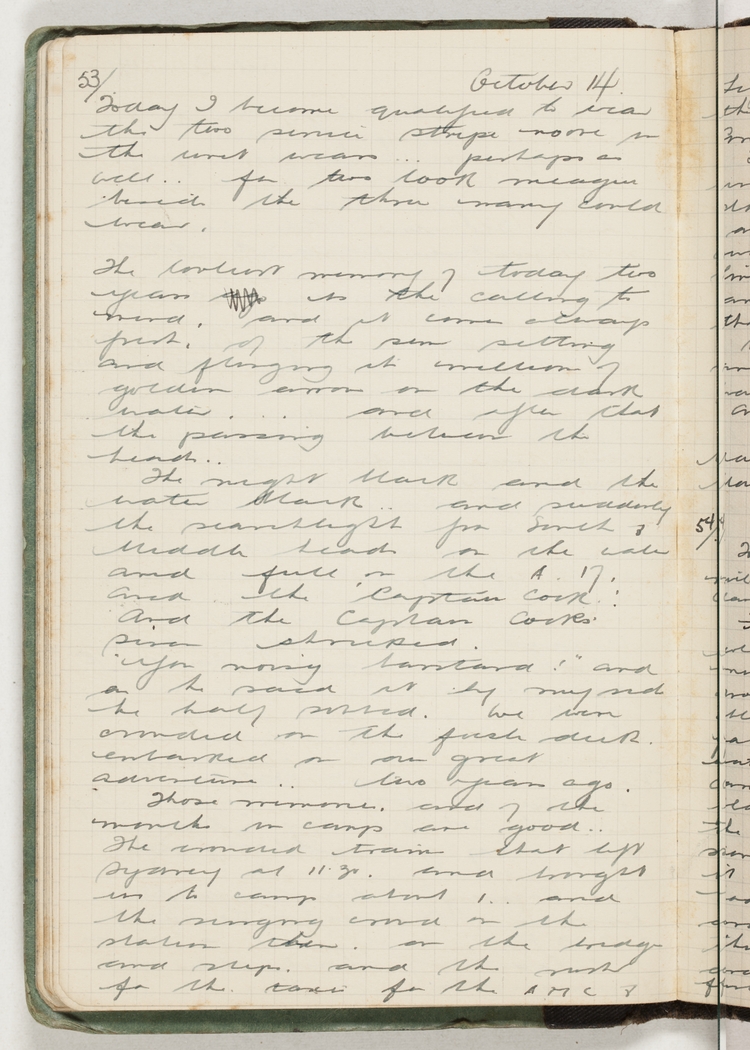 53/ October 14.
Today I became qualified to wear
the two service stripe more in
the unit wears... perhaps as
well.. for two look meagre
beside the three many could
wear.
The loveliest memory of today two
years is the calling to
mind, and it comes always
first, of the sun setting
and flinging its million of
golden arrows on the dark
water... and after that
the passing between the
heads..
The night black and the
water black.. and suddenly
the searchlight from South &
Middle heads on the water
and full on the A.17,
and the "Captain Cook!"
And the Captain Cook's
siren shrieked.
"You noisy bastard!" and
as he said it by my side
he half sobbed. We were
crowded on the fresh deck.
embarked on our great
adventure... two years ago.
Those memories, and of the
months in camp are good..
The crowded train that left
Sydney at 11.30. and brought
us to camp about 1.. and
the singing crowd on the
station then. on the bridge
and steps. and the rush
for the taxis for the AMC &
54/